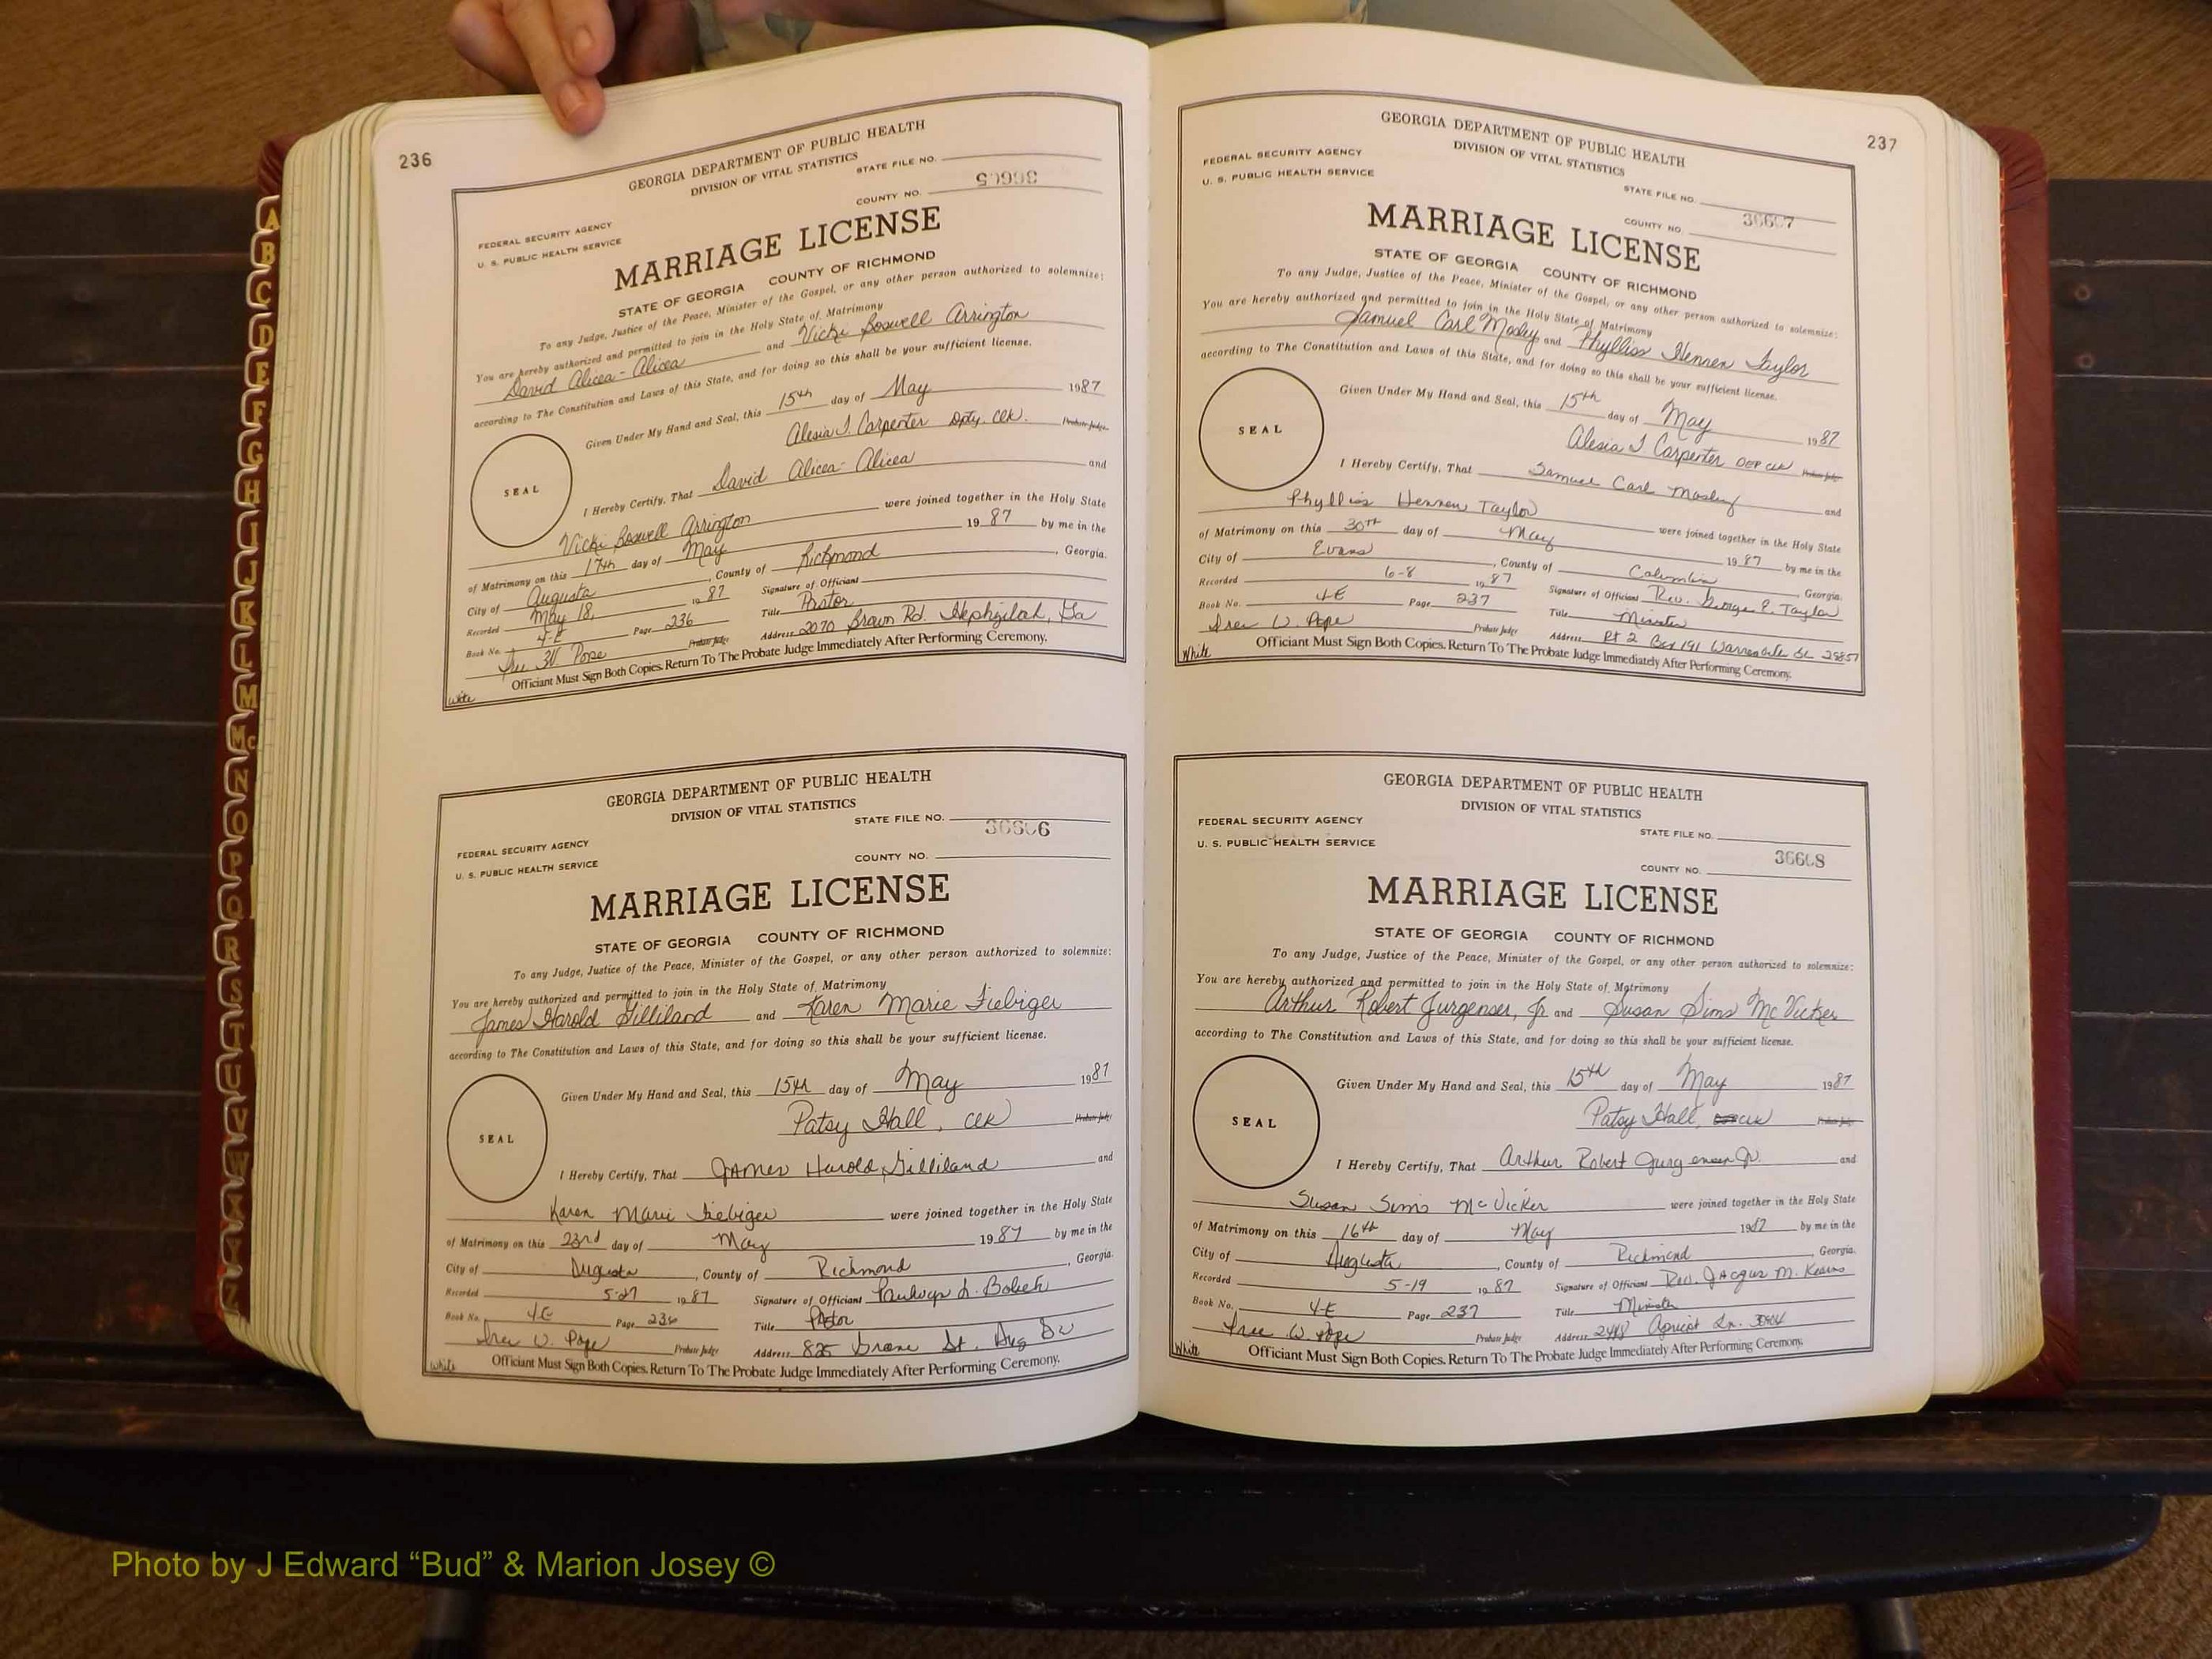 236
GEORGIA DEPARTMENT OF PUBLIC HEALTH
DIVISION OF VITAL STATISTICS
STATE FILE NO.
FEDERAL SECURITY AGENCY
COUNTY NO.
U. S. PUBLIC HEALTH SERVICE
MARRIAGE LICENSE
STATE OF GEORGIA COUNTY OF RICHMOND
To any Judge, Justice of the Peace, Minister of the Gospel, or any other person authorized to solemnize:
You are hereby authorized and permitted to join in the Holy State of Matrimony
David Alicea-Alicea and Vicki Boswell Arrington
according to The Constitution and Laws of this State, and for doing so this shall be your sufficient license.
Given Under My Hand and Seal, this 15th day of May 1987
Alesia J. Carpenter Dpty. Clk. Probate Judge
SEAL
I Hereby Certify, That David Alicea-Alicea and
Vicki Boswell Arrington were joined together in the Holy State
of Matrimony on this 17th day of May 1987 by me in the
City of Augusta, County of Richmond, Georgia.
Recorded May 18, 1987 Signature of Officiant
Book No. 4-E Page 236 Title Pastor
Probate Judge Address 2070 Brown Rd. Hephzibah, Ga
Officiant Must Sign Both Copies. Return To The Probate Judge Immediately After Performing Ceremony.
White
GEORGIA DEPARTMENT OF PUBLIC HEALTH
DIVISION OF VITAL STATISTICS
STATE FILE NO. 36606
FEDERAL SECURITY AGENCY
COUNTY NO.
U. S. PUBLIC HEALTH SERVICE
MARRIAGE LICENSE
STATE OF GEORGIA COUNTY OF RICHMOND
To any Judge, Justice of the Peace, Minister of the Gospel, or any other person authorized to solemnize:
You are hereby authorized and permitted to join in the Holy State of Matrimony
James Harold Gilliland and Karen Marie Fiebiger
according to The Constitution and Laws of this State, and for doing so this shall be your sufficient license.
Given Under My Hand and Seal, this 15th day of May 1987
Patsy Hall, Clk Probate Judge
SEAL
I Hereby Certify, That James Harold Gilliland and
Karen Marie Fiebiger were joined together in the Holy State
of Matrimony on this 23rd day of May 1987 by me in the
City of Augusta, County of Richmond, Georgia.
Recorded 5-27 1987 Signature of Officiant
Book No. 4-E Page 236 Title Pastor
Probate Judge Address 825 St. Aug
Officiant Must Sign Both Copies. Return To The Probate Judge Immediately After Performing Ceremony.
White
237
GEORGIA DEPARTMENT OF PUBLIC HEALTH
DIVISION OF VITAL STATISTICS
FEDERAL SECURITY AGENCY
U. S. PUBLIC HEALTH SERVICE
STATE FILE NO.
COUNTY NO. 36607
MARRIAGE LICENSE
STATE OF GEORGIA COUNTY OF RICHMOND
To any Judge, Justice of the Peace, Minister of the Gospel, or any other person authorized to solemnize:
You are hereby authorized and permitted to join in the Holy State of Matrimony
Samuel Carl Mosley and Phylliss Hennen Taylor
according to The Constitution and Laws of this State, and for doing so this shall be your sufficient license.
Given Under My Hand and Seal, this 15th day of May 1987
Alesia J Carpenter Dep Clk
SEAL
I Hereby Certify, That Samuel Carl Mosley and
Phylliss Hennen Taylor were joined together in the Holy State
of Matrimony on this 30th day of May 1987 by me in the
City of Evans, County of Columbia, Georgia.
Recorded 6-8 1987 Signature of Officiant Rev. George P. Taylor
Book No. 4E Page 237 Title Minister
Probate Judge Address Rt 2 Box 191 Warrenville SC
Officiant Must Sign Both Copies. Return To The Probate Judge Immediately After Performing Ceremony.
White
GEORGIA DEPARTMENT OF PUBLIC HEALTH
DIVISION OF VITAL STATISTICS
FEDERAL SECURITY AGENCY
STATE FILE NO.
U. S. PUBLIC HEALTH SERVICE
COUNTY NO. 36608
MARRIAGE LICENSE
STATE OF GEORGIA COUNTY OF RICHMOND
To any Judge, Justice of the Peace, Minister of the Gospel, or any other person authorized to solemnize:
You are hereby authorized and permitted to join in the Holy State of Matrimony
Arthur Robert Jurgensen, Jr. and Susan Sims McVicker
according to The Constitution and Laws of this State, and for doing so this shall be your sufficient license.
Given Under My Hand and Seal, this 15th day of May 1987
Patsy Hall, Clk
SEAL
I Hereby Certify, That Arthur Robert Jurgensen Jr. and
Susan Sims McVicker were joined together in the Holy State
of Matrimony on this 16th day of May 1987 by me in the
City of Augusta, County of Richmond, Georgia.
Recorded 5-19 1987 Signature of Officiant Rev. M. Kearns
Book No. 4-E Page 237 Title Minister
Probate Judge Address 2448 Apricot Ln.
Officiant Must Sign Both Copies. Return To The Probate Judge Immediately After Performing Ceremony.
White
A
B
C
D
E
F
G
H
I
J
K
L
M
Mc
N
O
P
Q
R
S
T
U
V
W
X
Y
Z
Photo by J Edward “Bud” & Marion Josey ©